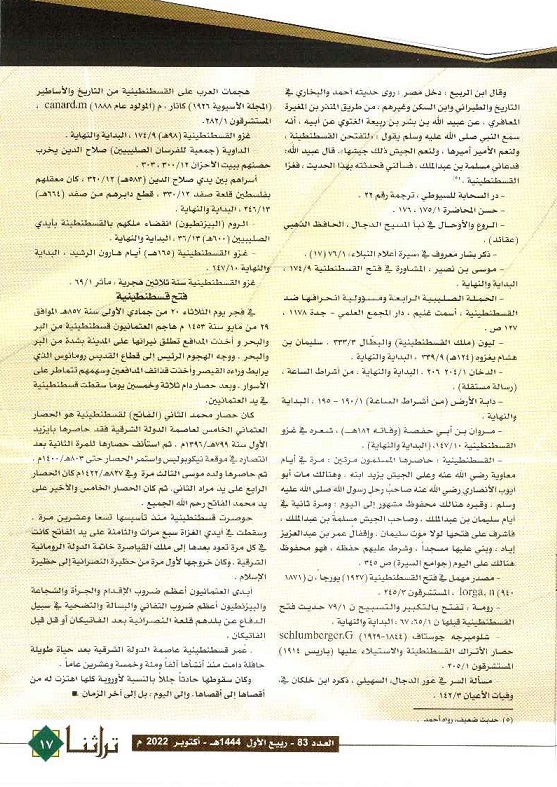 وقال ابن الربيع : دخل مصر ؛ روى حديثه أحمد والبخاري في
التاريخ والطبراني وابن السكن وغيرهم ، من طريق المنذر بن المغيرة
المعافري ، عن عبيد الله بن بشر بن ربيعة الغنوي عن أبيه ، أنه
سمع النبي صلى الله عليه وسلم يقول : «لتفتحن القسطنطينية ،
ولنعم الأمير أميرها ، ولنعم الجيش ذلك جيشها». قال عبيد الله:
فدعاني مسلمة بن عبدالملك ، فسألني فحدثته بهذا الحديث ، فغزا
القسطنطينية . (٥)
- در السحابة للسيوطي ، ترجمة رقم ٢٢ .
- حسن المحاضرة ١٧٥/١ ، ١٧٦ .
- الروع والأوجال في نبأ المسيح الدجال ، الحافظ الذهبي
(عقائد) .
- ذكر بشار معروف في سيرة أعلام النبلاء ٧٦/١ (١٧) .
- موسى بن نصير ، المشاورة في فتح القسطنطنية ١٧٤/٩ ،
البداية والنهاية .
- الحملة الصليبية الرابعة ومسؤولية انحرافها ضد
القسطنطينية ، أسمت غنيم ، دار المجمع العلمي - جدة ١١٧٨ ،
١٢٧ ص .
- ليون (ملك القسطنطينية) والبطّال ٣٣٣/٣ ، سليمان بن
هشام يغزوه (١٢٤هـ) ٣٣٩/٩ ، البداية والنهاية .
- الدخان ٢٠٤/١ ٢٠٦ ، البداية والنهاية ، من أشراط الساعة ،
(رسالة مستقلة) .
- دابة الأرض (من أشراط الساعة) ١٩٠/١ - ١٩٥ ، البداية
والنهاية .
- مروان بن أبي حفصة (وفاته ١٨٢هـ) ، شعره في غزو
القسطنطينية ١٤٧/١٠ ، (البداية والنهاية) .
- القسطنطينية : حاصرها المسلمون مرتين : مرة في أيام
معاوية رضي الله عنه وعلى الجيش يزيد ابنه ، وهنالك مات أبو
أيوب الأنصاري رضي الله عنه صاحبُ رحل رسول الله صلى الله عليه
وسلم ، وقبره هنالك محفوظ مشهور إلى اليوم : ومرة ثانية في
أيام سليمان بن عبدالملك ، وصاحب الجيش مسلمةُ بن عبدالملك ،
فأشرف على فتحها لولا موت سليمان ، وإقفال عمر بن عبدالعزيز
إياه ، وبنى عليها مسجداً ، وشرط عليهم حفظه ، فهو محفوظ
هنالك على اليوم (جوامع السيرة) ص ٣٤٥ .
- مصدر مهمل في فتح القسطنطينية (١٩٢٧) يورجا ، ن (١٨٧١
٩٤٠) Iorga, n ، المستشرقون ٢٤٥/٣ .
- رومة ، تفتح بالتكبير والتسبيح ن ٧٩/١ حديث فتح
القسطنطينية قبلها ن ٦٥/١ ؛ ٦٧ ، البداية والنهاية .
- شلومبرجه جوستاف (١٨٤٤-١٩٢٩) schlumberger.G
حصار الأتراك القسطنطينة والاستيلاء عليها (باريس ١٩١٤)
المستشرقون ٢٠٥/١ .
مسألة السر في عور الدجال، السهيلي ، ذكره ابن خلكان في
وفيات الأعيان ١٤٢/٣ .
(٥) حديث ضعيف، رواه أحمد .
هجمات العرب على القسطنطينية من التاريخ والأساطير
(المجلة الآسيوية ١٩٢٦) كانار ، م (المولود عام ١٨٨٨) canard.m ،
المستشرقون ٢٨٢/١ .
غزو القسطنطينية (٩٨هـ) ١٧٤/٩ ، البداية والنهاية .
الداوية (جمعية للفرسان الصليبيين) صلاح الدين يخرب
حصنهم ببيت الأحزان ٣٠٠/١٢ ، ٣٠٣ .
أسراهم بين يدي صلاح الدين (٥٨٣هـ) ٣٢٠/١٢ ، كان معقلهم
بفلسطين قلعة صفد ٣٣٠/١٢ ، قطع دابرهم من صفد (٦٦٤هـ)
٢٤٦/١٣ ، البداية والنهاية .
- الروم (البيزنطيون) انقضاء ملكهم بالقسطنطينة بأيدي
الصليبيين (٦٠٠هـ) ٣٦/١٣ ، البداية والنهاية .
- غزو القسطنطينية (١٦٥هـ) أيام هارون الرشيد ، البداية
والنهاية ١٤٧/١٠ .
غزو القسطنطينية سنة ثلاثين هجرية ، مآثر ٦٩/١ .
فتح قسطنطينية
في فجر يوم الثلاثاء ٢٠ من جمادى الأولى سنة ٨٥٧هـ الموافق
٢٩ من مايو سنة ١٤٥٣ م هاجم العثمانيون قسطنطينية من البر
والبحر و أخذت المدافع تطلق نيرانها على المدينة بشدة من البر
والبحر . ووجه الهجوم الرئيس إلى قطاع القديس رومانوس الذي
يرابط وراءه القيصر وأخذت قذائف المدافعين وسهمهم تتماطر على
الأسوار . وبعد حصار دام ثلاثة وخمسين يوما سقطت قسطنطينية
في يد العثمانيين .
كان حصار محمد الثاني (الفاتح) لقسطنطينية هو الحصار
العثماني الخامس لعاصمة الدولة الشرقية فقد حاصرها بايزيد
الأول سنة ٧٩٩هـ/١٣٩٦م . ثم استأنف حصارها للمرة الثانية بعد
انتصاره في موقعة نيكوبوليس واستمر الحصار حتى ٨٠٣هـ/١٤٠٠م .
ثم حاصرها ولده موسى الثالث مرة وفي ٨٢٧هـ/١٤٢٢م كان الحصار
الرابع على يد مراد الثاني . ثم كان الحصار الخامس والأخير على
يد محمد الفاتح رحم الله الجميع .
حوصرت قسطنطينية منذ تأسيسها تسعا وعشرين مرة .
وسقطت في أيدي الغزاة سبع مرات والثامنة على يد الفاتح كانت
في كل مرة تعود بعدها إلى ملك القياصرة خاتمة الدولة الرومانية
الشرقية . وكان خروجها لأول مرة من حظيرة النصرانية إلى حظيرة
الإسلام .
أبدى العثمانيون أعظم ضروب الإقدام والجرأة والشجاعة
والبيزنطيون أعظم ضروب التفاني والبسالة والتضحية في سبيل
الدفاع عن بلدهم قلعة النصرانية بعد الفاتيكان أو قل قبل
الفاتيكان .
عُمر قسطنطينية عاصمة الدولة الشرقية بعد حياة طويلة
حافلة دامت منذ أنشئها ألفا ومئة وخمسة وعشرين عاماً .
وكان سقوطها حادثاً جللاً بالنسبة لأوروبة كلها اهتزت له من
أقصاها إلى أقصاها . وإلى اليوم ؛ بل إلى آخر الزمان .
العدد 83 - ربيع الأول 1444هـ - أكتوبر 2022 م
تراثنا
١٧